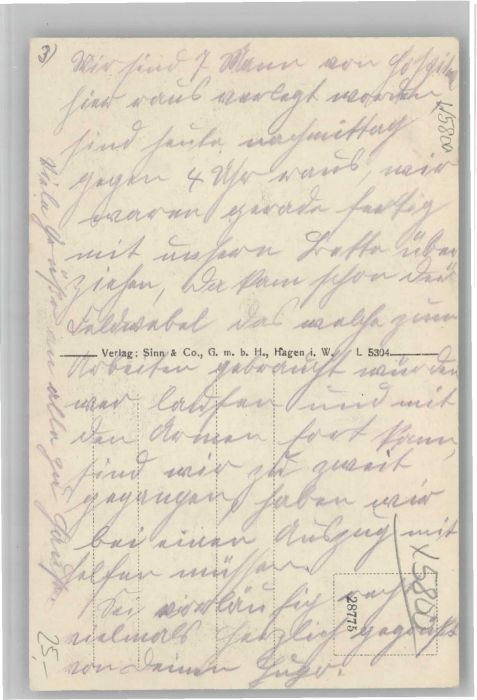 3)
Wir sind 7 Mann von Hospital
hier raus verlegt worden
sind heute nachmittag
gegen 4 Uhr raus, wir
waren gerade fertig
mit unsern Bette über
ziehen, da kam schon der
Feldwebel das welche zum
Verlag: Sinn & Co., G. m. b. H., Hagen i. W. L 5304
Arbeiten gebraucht würden
wer laufen und mit
den Armen fort kann,
sind wir zu zweit
gegangen, haben wir
bei einen Auszug mit
helfen müssen.
Sei vorläufig recht
vielmals herzlich gegrüßt
von Deinen Hugo.
Viele Grüße an alle zu Hause
x5800
x5800
28775
25.-